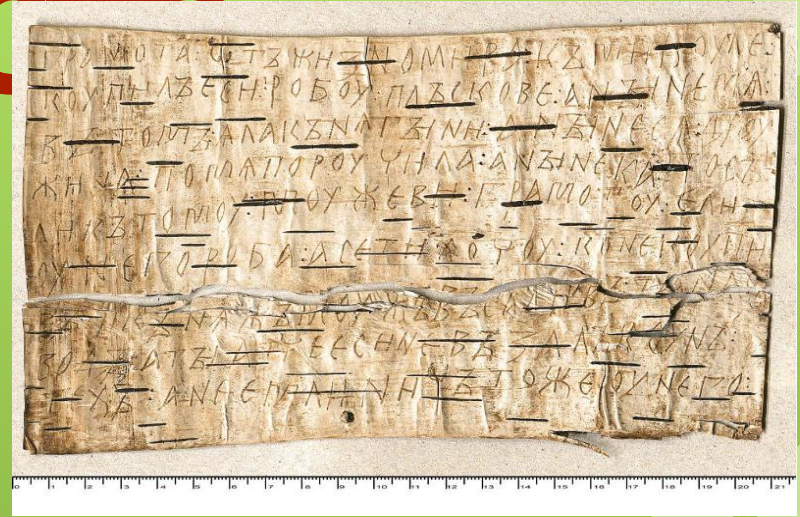 ГРАМОТА:ѠТЪЖИЗНОМИРАКЪМИКОУЛЕ:
КОУПИЛЪЕСИ:РОБОУ:ПЛЪСКОВЕ:АНЫНЕМѦ:
ВЪТОМЪ:ѦЛАКЪНѦГЫНИ:АНЫНЕСѦДРОУ
ЖИНА:ПОМѦПОРОУЧИЛА:АНЫНЕКА:ПОСЪ
ЛИКЪТОМОУ:МОУЖЕВИ:ГРАМОТОУ:ЕЛИ
ОУНЕГОРОБА:АСЕТИХОЧОУ:КОНЕКОУПИ
ВЪ:ИКЪНѦЖЪМОУЖЪВЪСА
ВОДЫ:АТЫАТЧЕЕСИНЕВЪЗАЛЪКОУНЪ
ТЕХЪ:АНЕЕМЛИ:НИЧЪТОЖЕОУНЕГО:
0 1 2 3 4 5 6 7 8 9 10 11 12 13 14 15 16 17 18 19 20 21